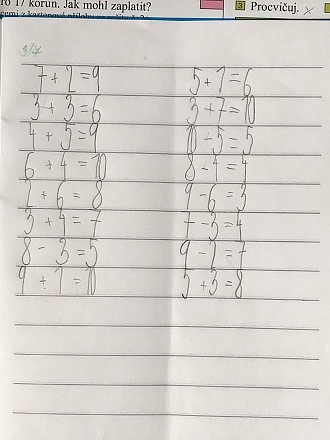 ro 17 korun. Jak mohl zaplatit?
3 Procvičuj.
3/7
7 + 2 = 9
3 + 3 = 6
4 + 5 = 9
6 + 4 = 10
2 + 6 = 8
3 + 4 = 7
8 - 3 = 5
9 + 1 = 10
5 + 1 = 6
3 + 7 = 10
10 - 5 = 5
8 - 4 = 4
9 - 6 = 3
7 - 3 = 4
9 - 2 = 7
3 + 5 = 8